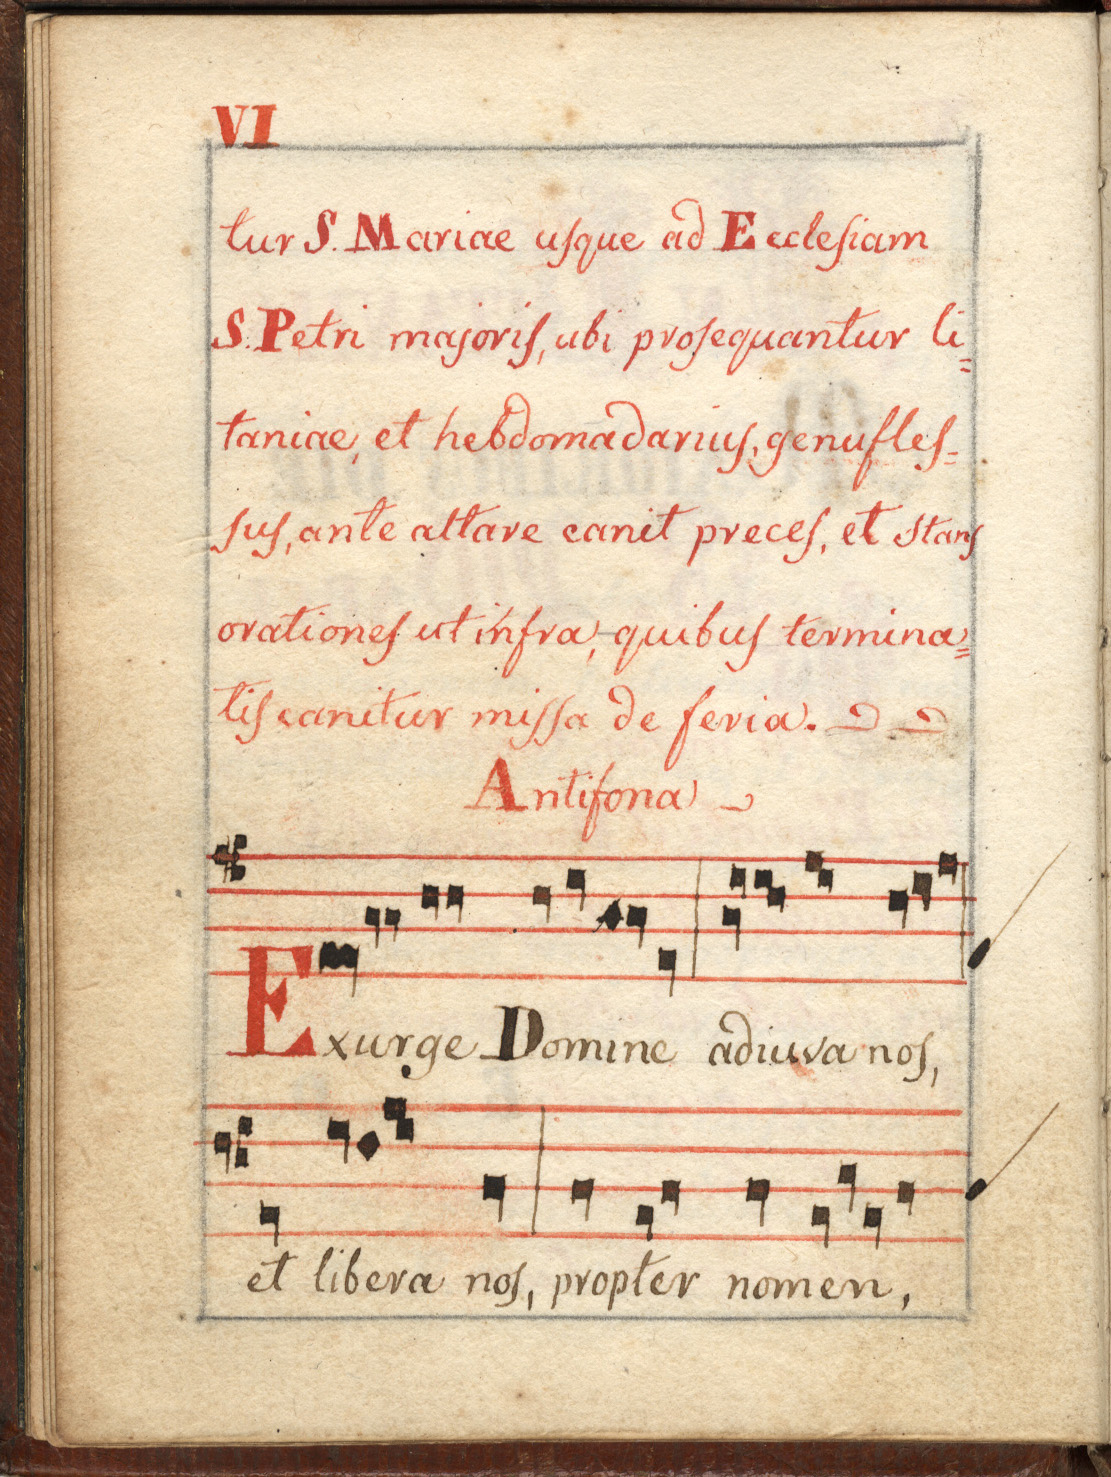 VI
tur S. Mariae usque ad Ecclesiam
S. Petri majoris, ubi prosequantur li=
taniae, et hebdomadarius, genufles-
sus, ante altare canit preces, et stans
orationes ut infra, quibus termina=
tis canitur missa de feria.
Antifona
Exurge Domine adiuva nos,
et libera nos, propter nomen,